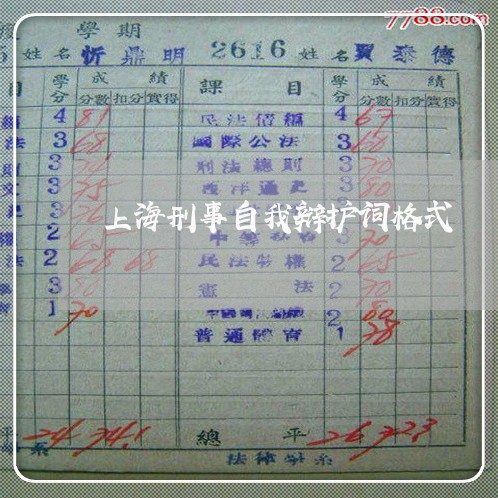 7788.com
學期
姓名 忻鼎明 2616 姓名 賈泰德
目 學分 成績 課目 學分 成績
分數 扣分 實得 分數 扣分 實得
4 81 民法債編 4 67
法 3 68 國際公法 3 60
3 刑法總則 3 70
3 75 西洋通史 3 80
3 76 3
上海刑事自我辩护词格式
2 65 3 70
法 2 68 68 民法物權 2 65
3 80 憲法 2 70
1 70 2 80
普通體育 1 78
平 24 74.1 總平 26 72.3
系 法律學系